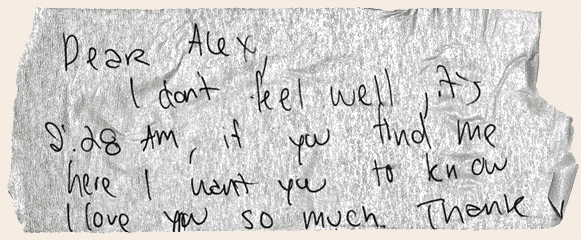 Dear Alex,
I don't feel well, it's
2:28 Am, if you find me
here I want you to know
I love you so much. Thank